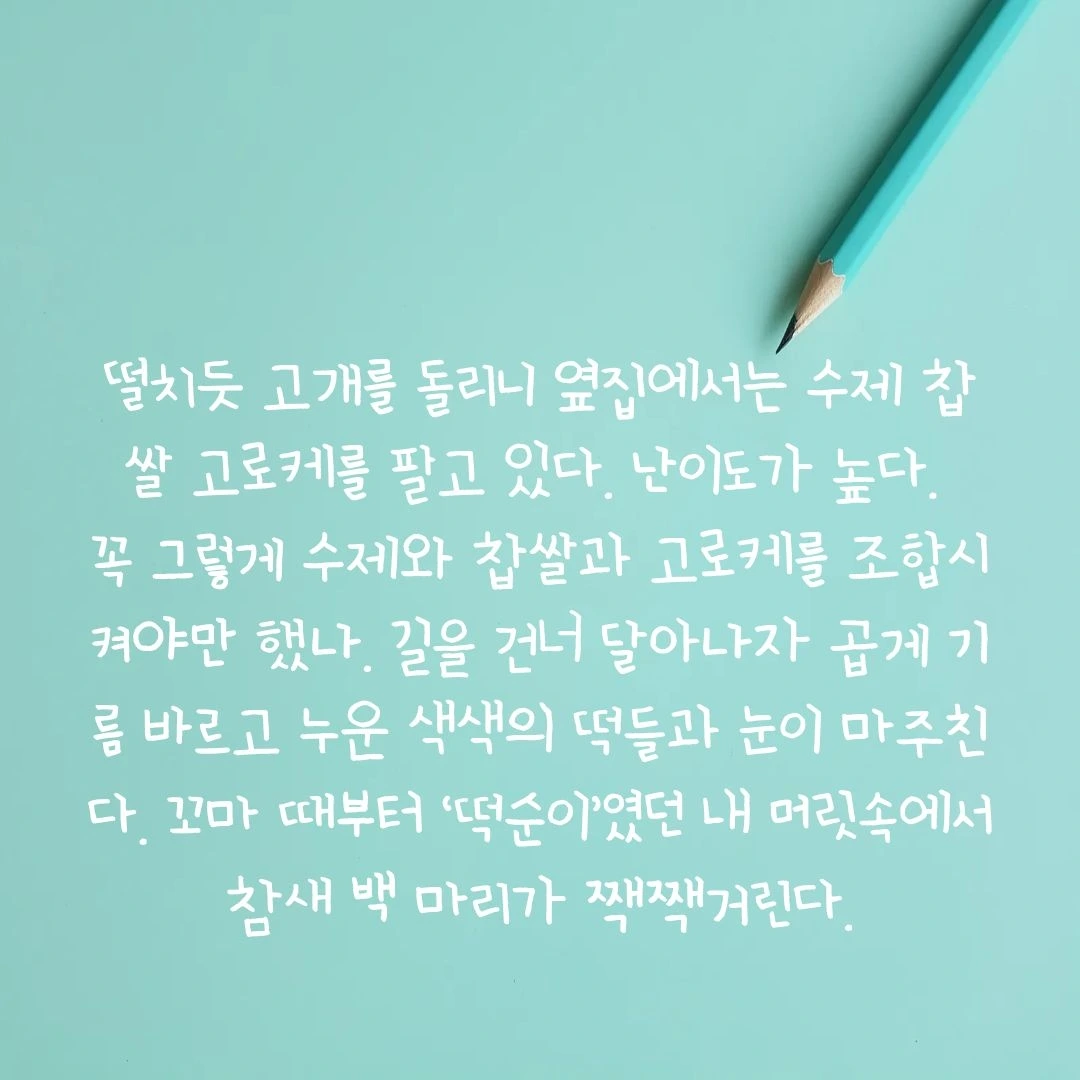 떨치듯 고개를 돌리니 옆집에서는 수제 찹
쌀 고로케를 팔고 있다. 난이도가 높다.
꼭 그렇게 수제와 찹쌀과 고로케를 조합시
켜야만 했나. 길을 건너 달아나자 곱게 기
름 바르고 누운 색색의 떡들과 눈이 마주친
다. 꼬마 때부터 ‘떡순이’였던 내 머릿속에서
참새 백 마리가 짹짹거린다.